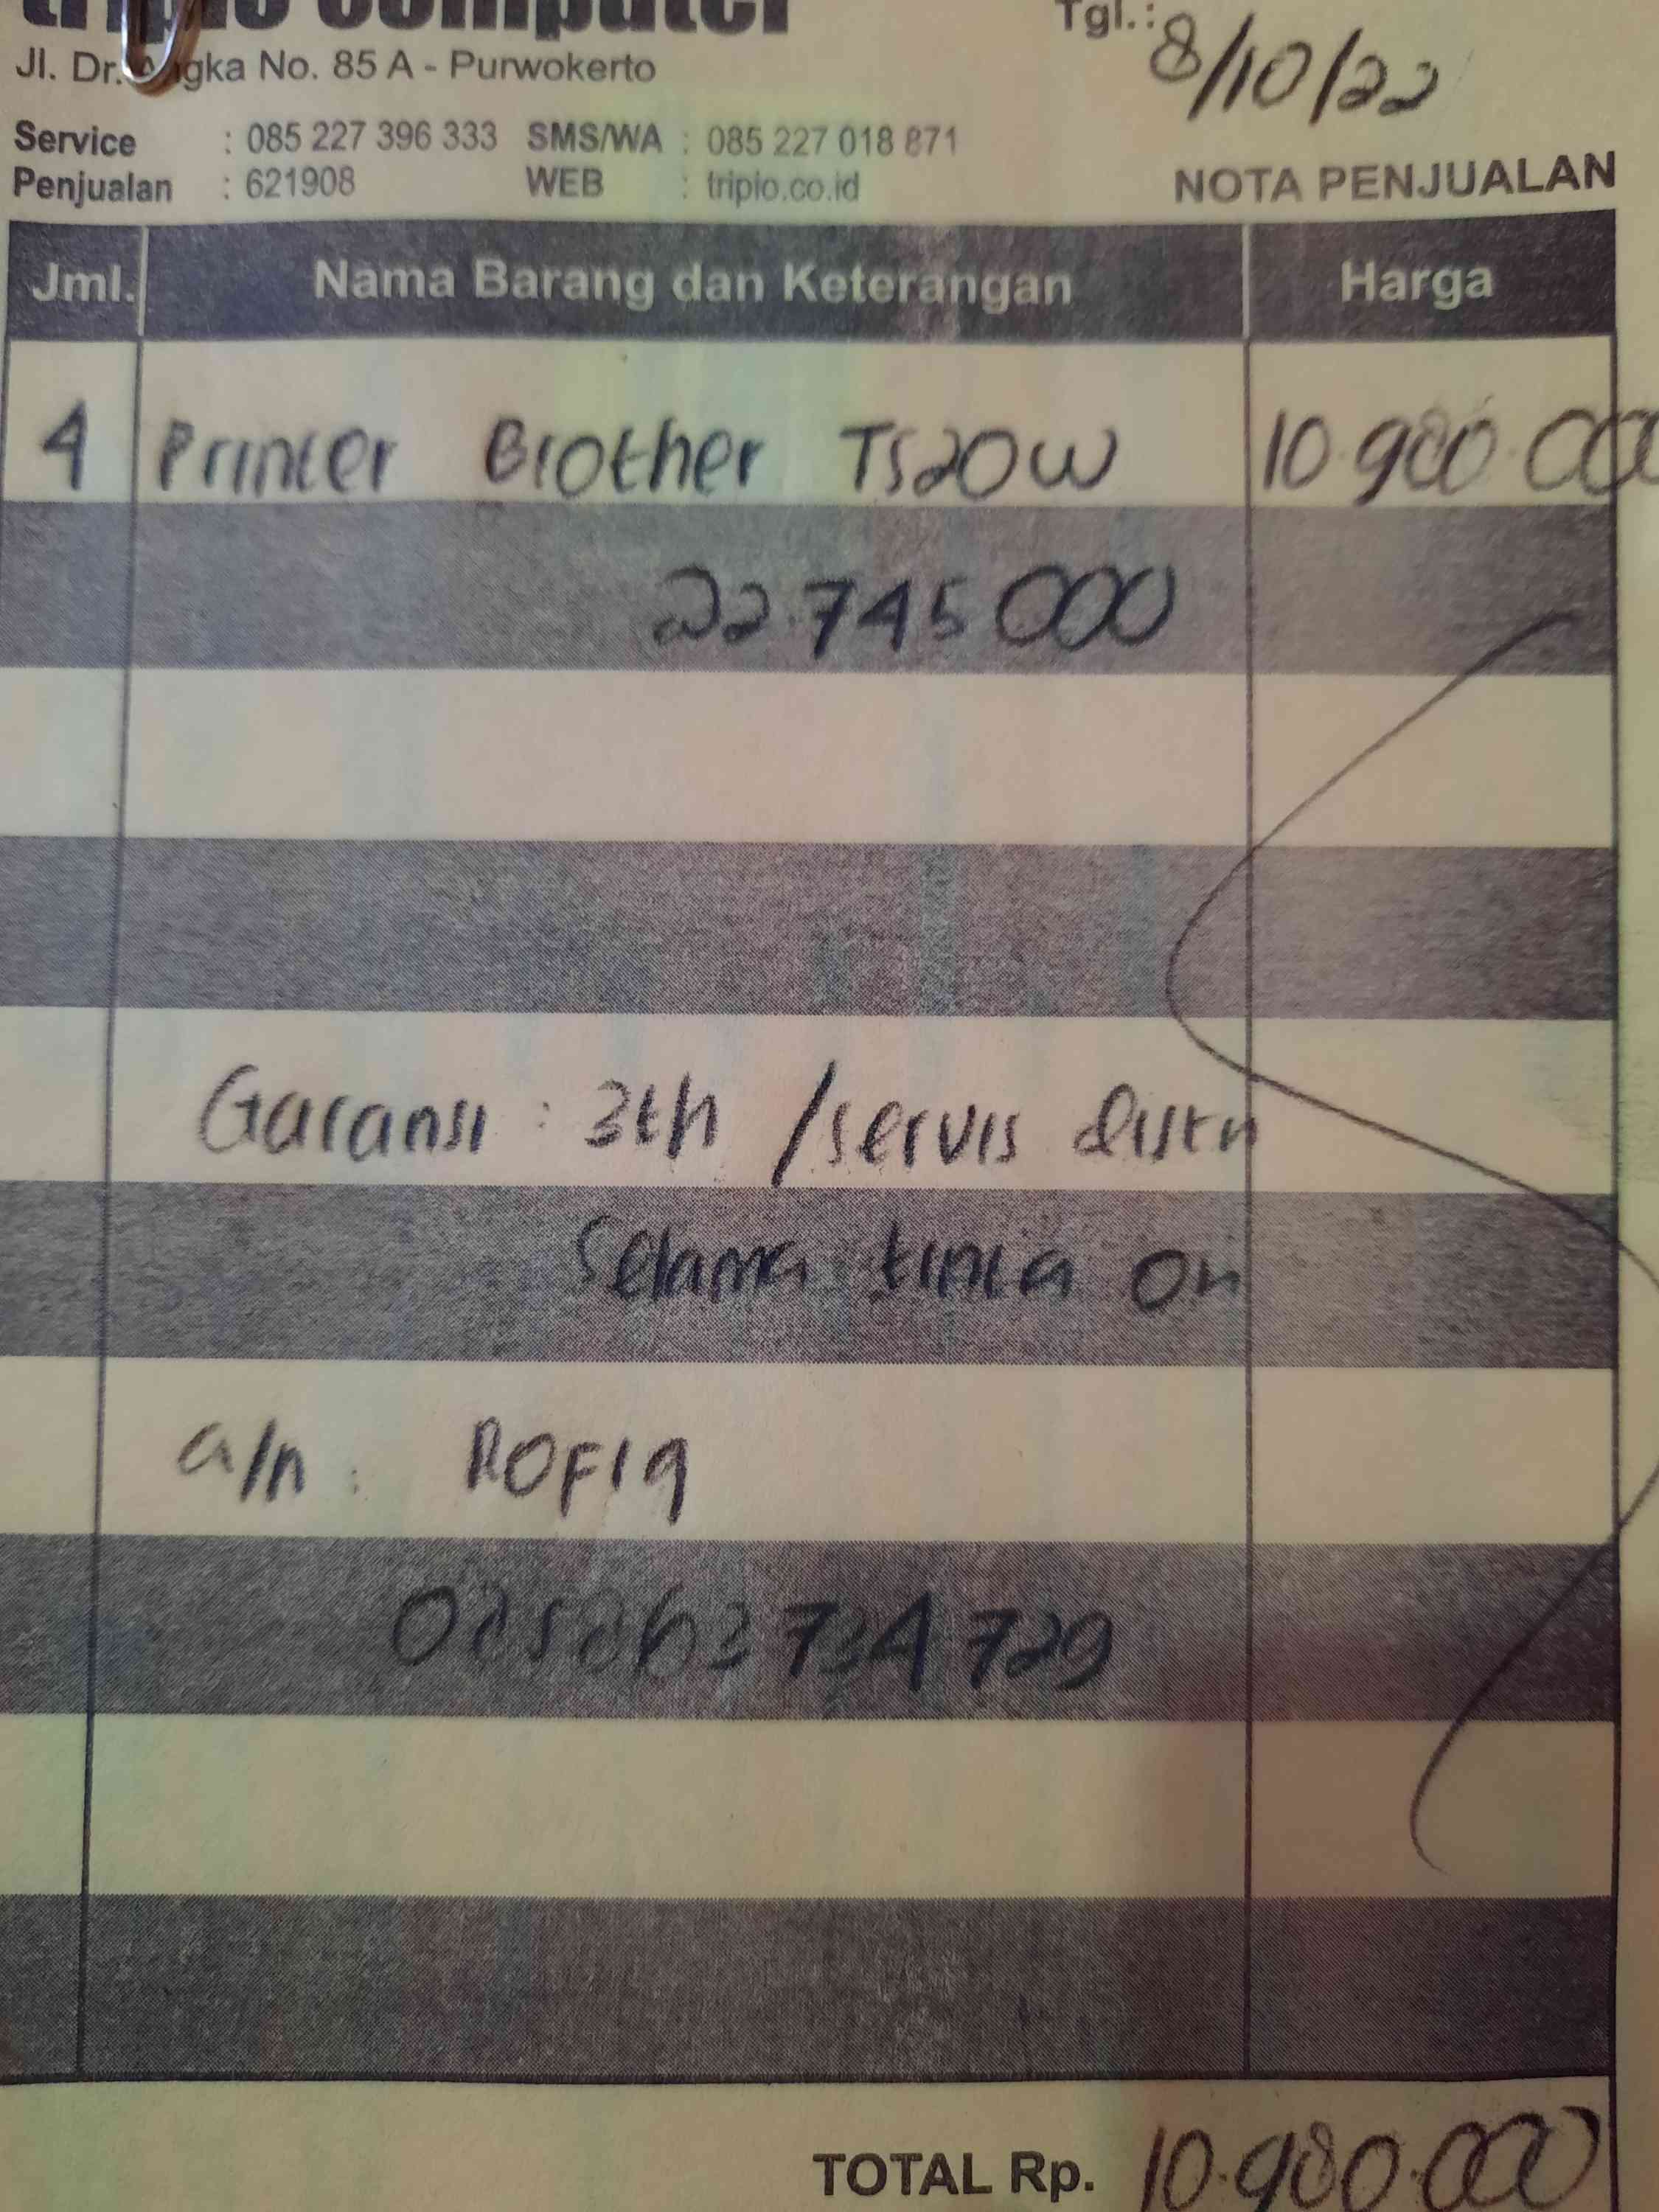 triplo computer
Tgl.: 8/10/22
Jl. Dr. Angka No. 85 A - Purwokerto
Service : 085 227 396 333 SMS/WA : 085 227 018 871
Penjualan : 621908 WEB : triplo.co.id
NOTA PENJUALAN
Jml. Nama Barang dan Keterangan Harga
4 Printer Brother T520W 10.980.000
22.745000
Garansi : 3th / servis
Selama tinta on
a/n : ROFIQ
TOTAL Rp. 10.980.000